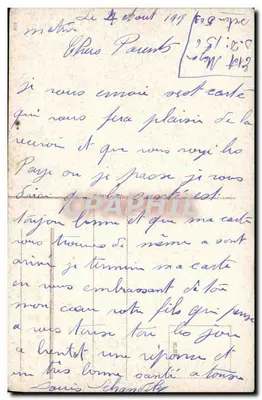 Le 4 Aout 191
matin
Chers Parents
je vous envoie cest carte
qui vous fera plaisir de la
recevoir et que vous voyez les
Pays ou je passe je vous
dirai que la santé est
toujour bonne et que ma carte
vous trouve de même a sont
arivé je termine ma carte
en vous embrassant de tou
mon cœur votre fils qui pense
a vous tous les jour
a bientot une réponse et
une bonne santé a tous
Louis